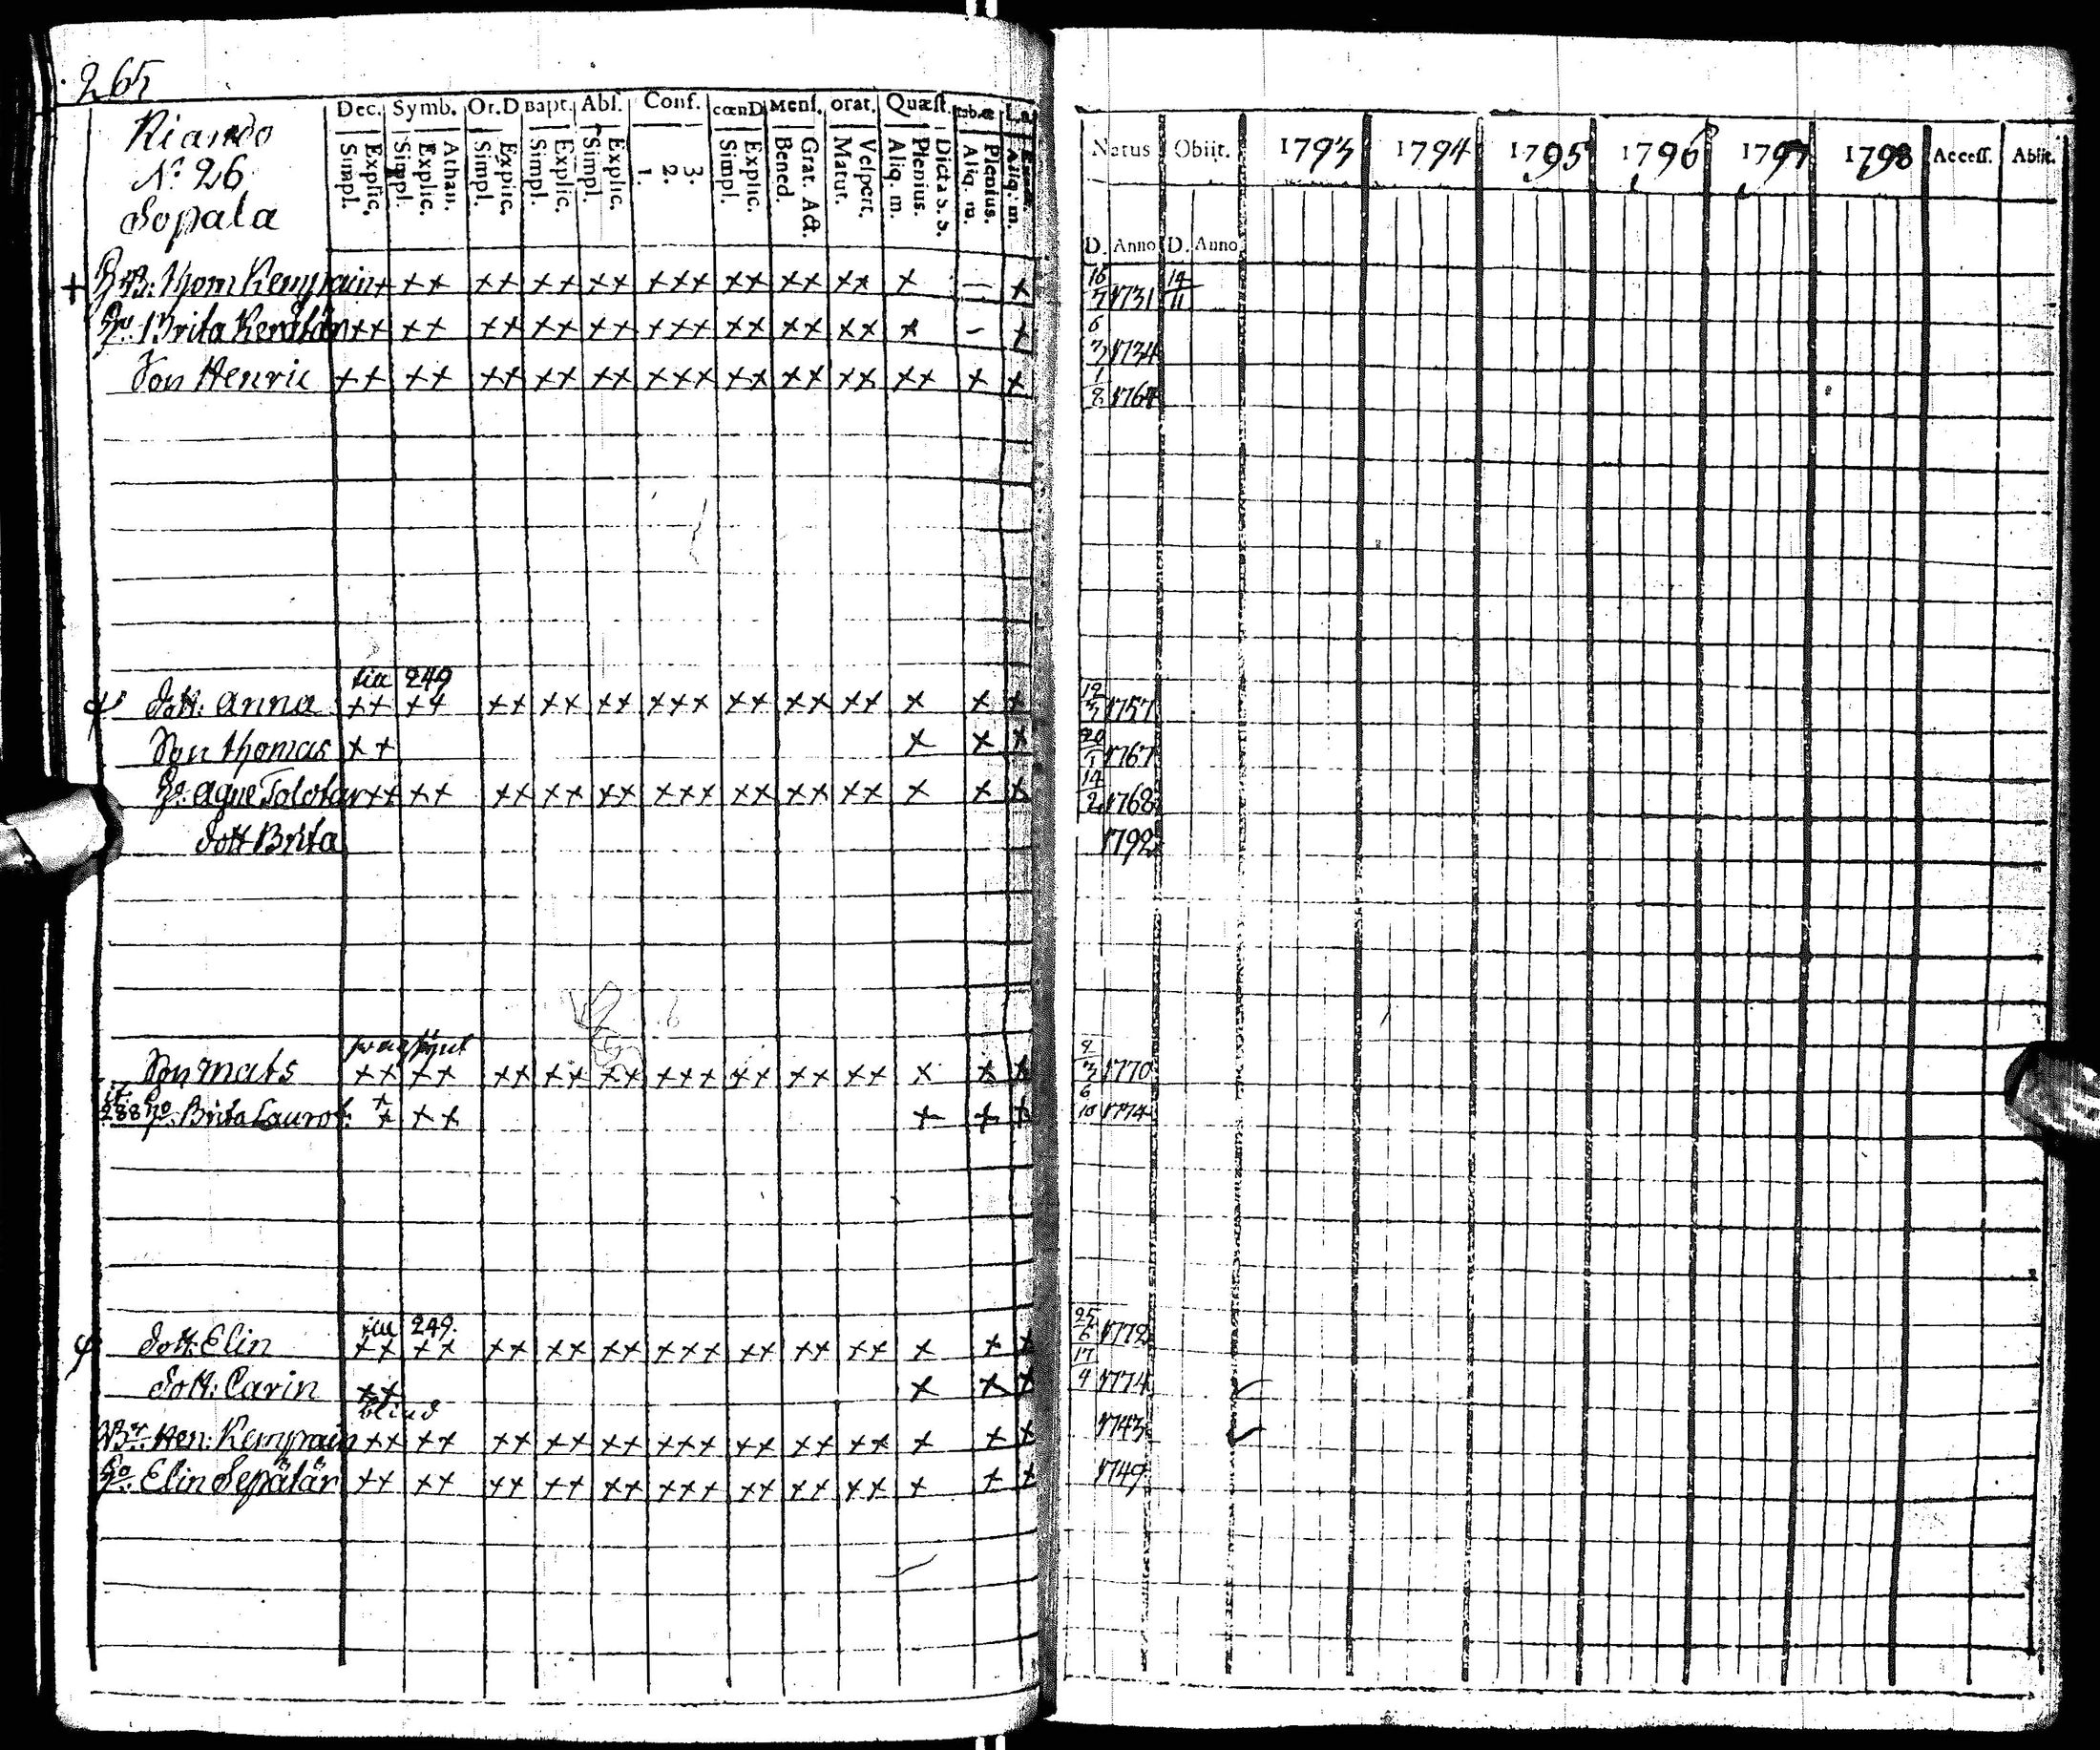 265
Riando
No 26
Sopala
Dec. Symb. Or.D Bapt. Abſ. Conf. cœnD Menſ. orat. Quæſt.
Simpl. Explic. Simpl. Explic. Athan. Simpl. Explic. Simpl. Explic. Simpl. Explic. 1. 2. 3. Simpl. Explic. Bened. Grat. Act. Matut. Veſpert. Aliq. m. Plenius. Dicta S. S. Aliq. m. Plenius. Aliq. m.
Natus Obiit. 1793 1794 1795 1796 1797 1798 Acceſſ. Abiit.
D. Anno D. Anno
+ Thom Kemppain + ×× ×× ×× ×× ××× ×× ×× ×× × — × 16/5 1731 14/11
Brita ×× ×× ×× ×× ×× ××× ×× ×× ×× × – × 6/3 1734
Son Henric ×× ×× ×× ×× ×× ××× ×× ×× ×× ×× × × 1/8 1764
249
dott: Anna ×× ×× ×× ×× ×× ××× ×× ×× ×× × × × 12/3 1757
Son Thomas ×× × × × 20/1 1767
Agne ×× ×× ×× ×× ×× ××× ×× ×× ×× × × × 14/2 1768
dott Brita 1792
Son Mats ×× ×× ×× ×× ×× ××× ×× ×× ×× × × × 1770
288 Brita Laurot: ×× ×× × × × 6/10 1774
249.
dott: Elin ×× ×× ×× ×× ×× ××× ×× ×× ×× × × × 25/6 1772
dott: Carin ×× × × × 17/4 1774
blind
Br. Hen: Kempain ×× ×× ×× ×× ×× ××× ×× ×× ×× × × × 1743
Elin Sepätär ×× ×× ×× ×× ×× ××× ×× ×× ×× × × × 1749